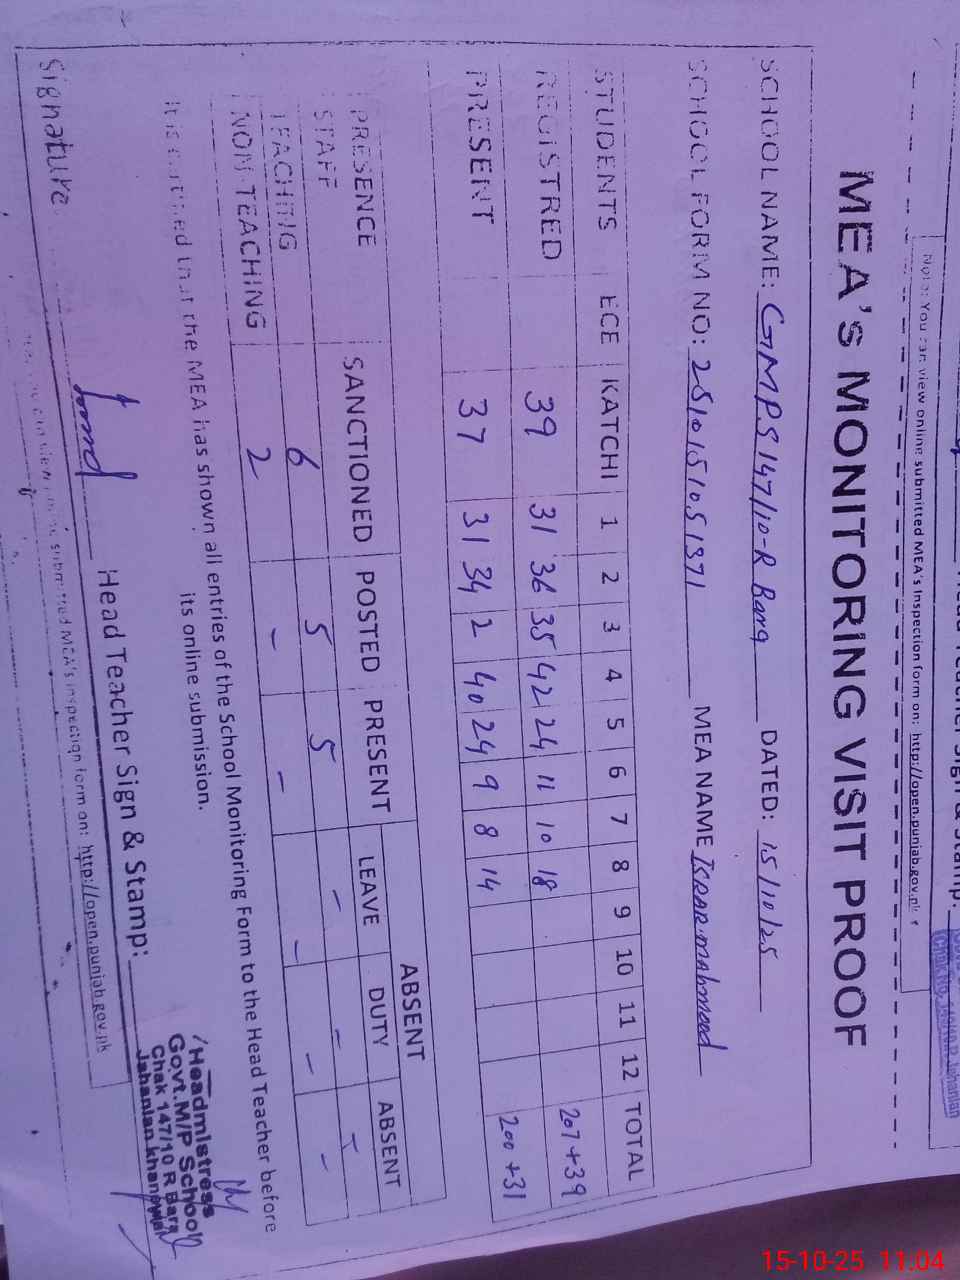 Note: You can view online submitted MEA's Inspection form on: http://open.punjab.gov.pk
MEA'S MONITORING VISIT PROOF
SCHOOL NAME: GMPS 147/10-R Bara DATED: 15/10/25
SCHOOL FORM NO: 2510151051371 MEA NAME ISRAR mahmood
STUDENTS ECE KATCHI 1 2 3 4 5 6 7 8 9 10 11 12 TOTAL
REGISTRED 39 31 36 35 42 24 11 10 18 207+39
PRESENT 37 31 34 2 40 24 9 8 14 200+31
PRESENCE SANCTIONED POSTED PRESENT ABSENT
STAFF LEAVE DUTY ABSENT
TEACHING 6 5 5 - - -
NON TEACHING 2 - - - - -
It is certified that the MEA has shown all entries of the School Monitoring Form to the Head Teacher before
its online submission.
Signature Head Teacher Sign & Stamp:
Headmistress
Govt.M/P School
Chak 147/10 R Bara
Jahanian khanewal
submitted MEA's inspection form on: http://open.punjab.gov.pk
15-10-25 11:04